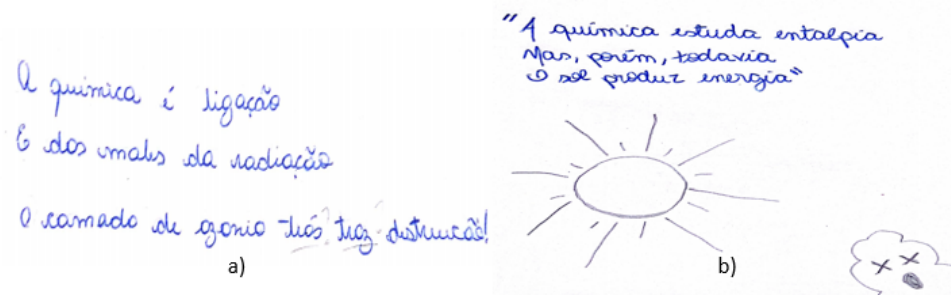 A química é ligação
E dos males da radiação
O camada de ozonio trás traz destruição!
a)
"A química estuda entalpia
Mas, porém, todavia
O sol produz energia"
b)